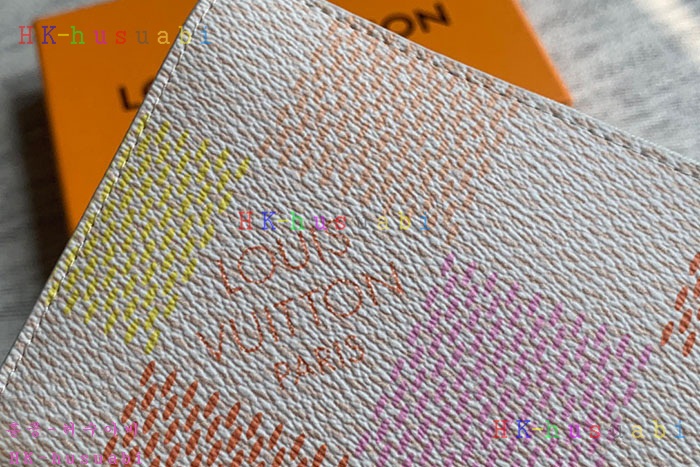 HK-husuabi
LO
ON
HK-hus abi
LOUIS
VUITTON
PARIS
HK-husuabi
HK-husuabi